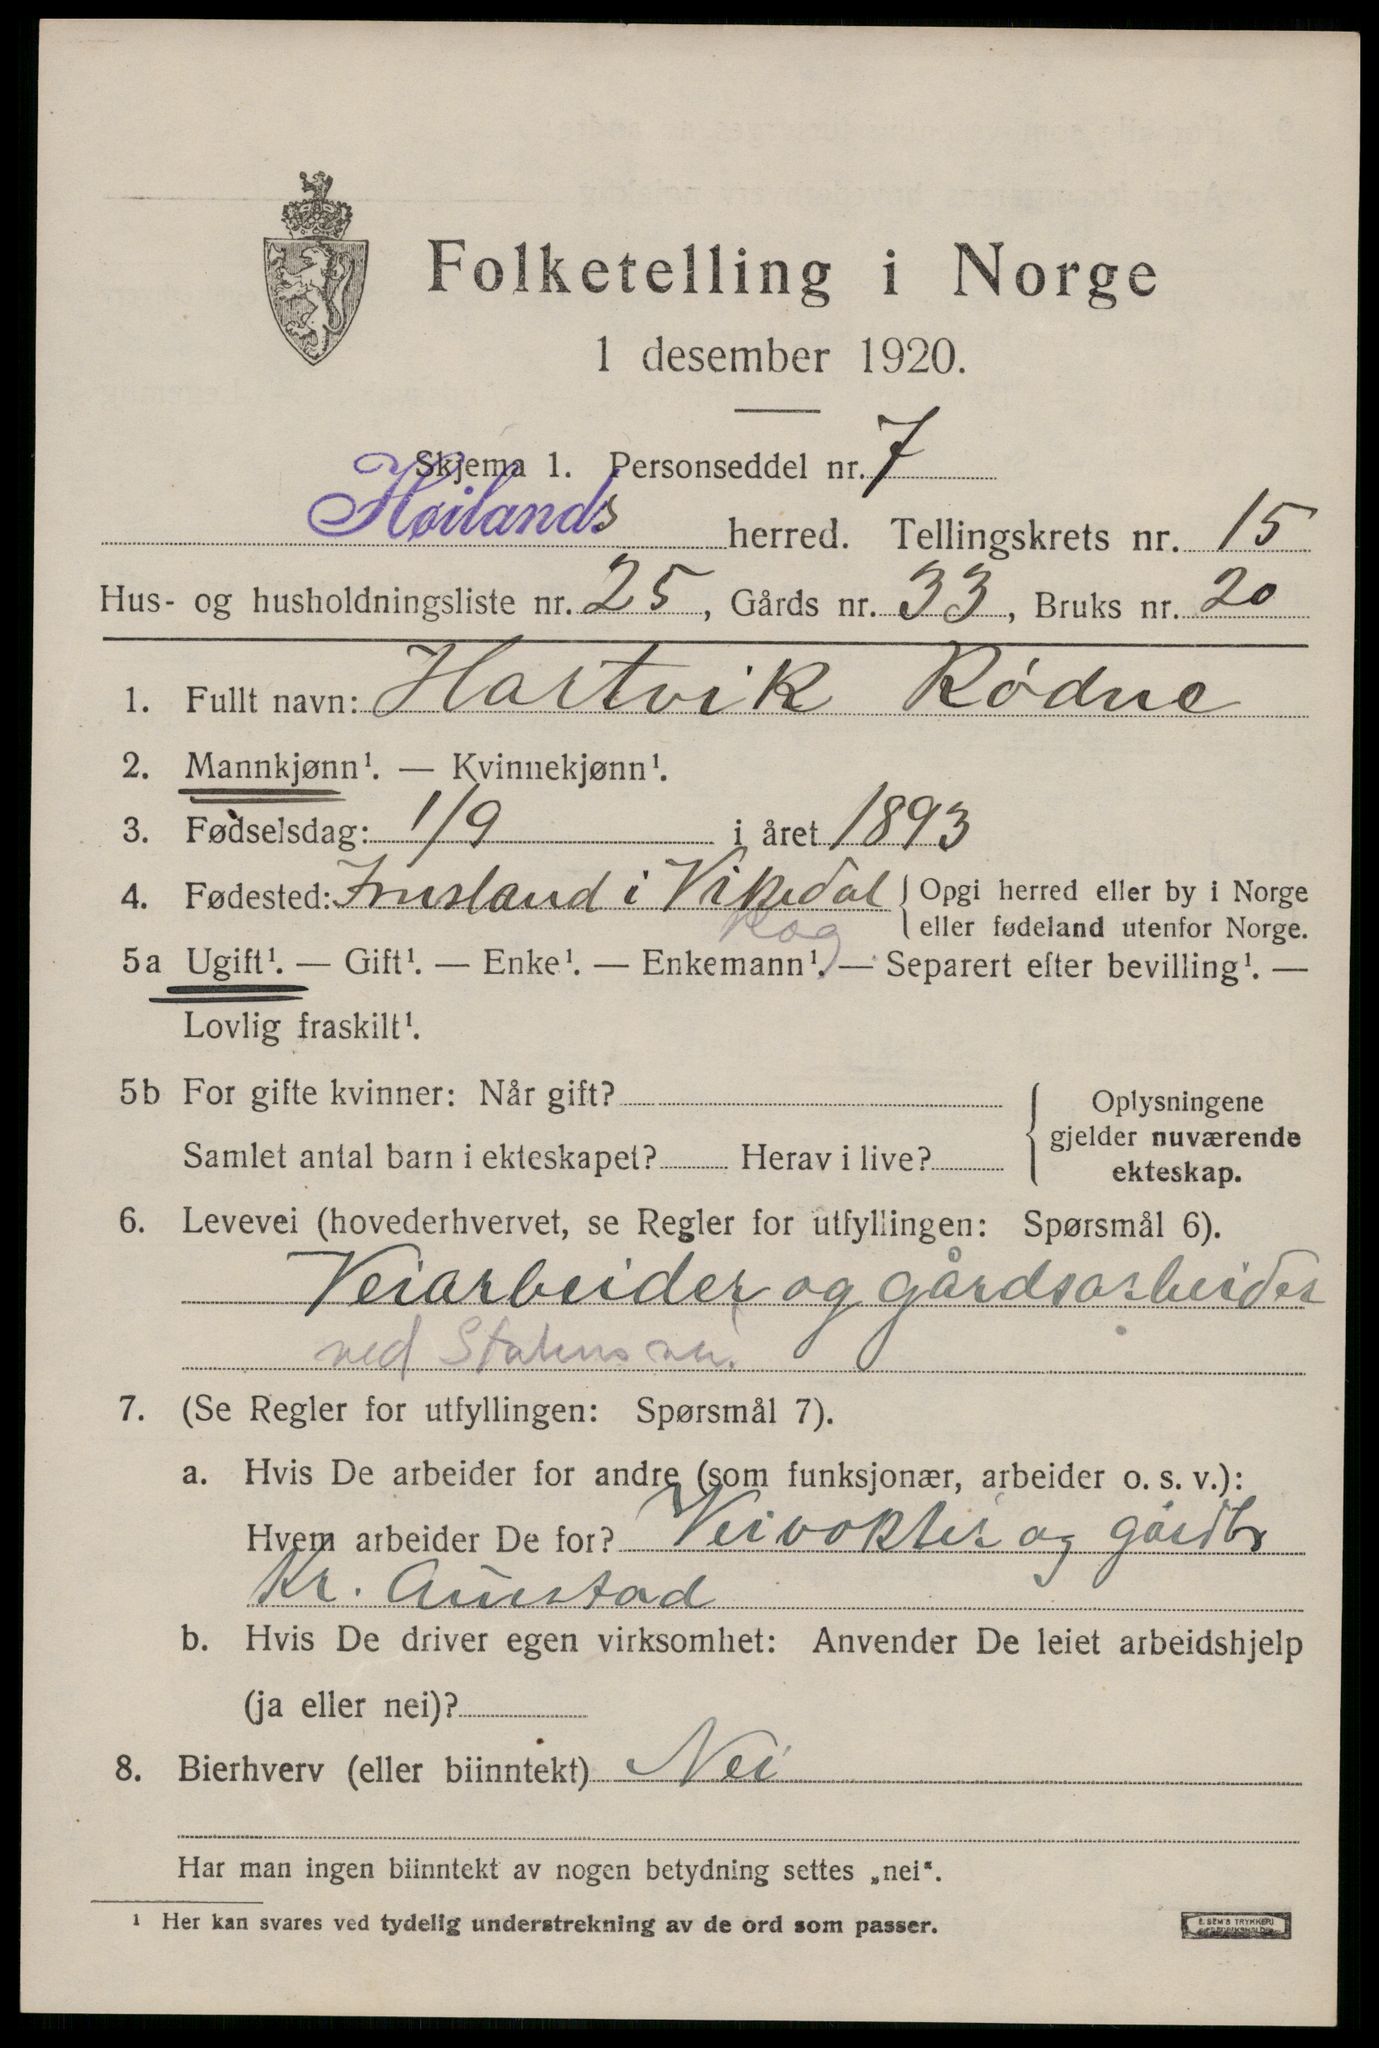 Folketelling i Norge
1 desember 1920.
Skjema 1. Personseddel nr. 7
Høilands herred. Tellingskrets nr. 15
Hus- og husholdningsliste nr. 25, Gårds nr. 33, Bruks nr. 20
1. Fullt navn: Hartvik Rødne
2. Mannkjønn¹. — Kvinnekjønn¹.
3. Fødselsdag: 1/9 i året 1893
4. Fødested: Imsland i Vikedal { Opgi herred eller by i Norge
eller fødeland utenfor Norge.
Rog
5a Ugift¹. — Gift¹. — Enke¹. — Enkemann¹. — Separert efter bevilling¹. —
Lovlig fraskilt¹.
5b For gifte kvinner: Når gift?
Samlet antal barn i ekteskapet? Herav i live?
{ Oplysningene
gjelder nuværende
ekteskap.
6. Levevei (hovederhvervet, se Regler for utfyllingen: Spørsmål 6).
Veiarbeider og gårdsarbeider
ved
7. (Se Regler for utfyllingen: Spørsmål 7).
a. Hvis De arbeider for andre (som funksjonær, arbeider o. s. v.):
Hvem arbeider De for? Veivokter og gårdbr
Kr. Auestad
b. Hvis De driver egen virksomhet: Anvender De leiet arbeidshjelp
(ja eller nei)?
8. Bierhverv (eller biinntekt) Nei
Har man ingen biinntekt av nogen betydning settes „nei“.
¹ Her kan svares ved tydelig understrekning av de ord som passer.
E. SEM'S TRYKKERI